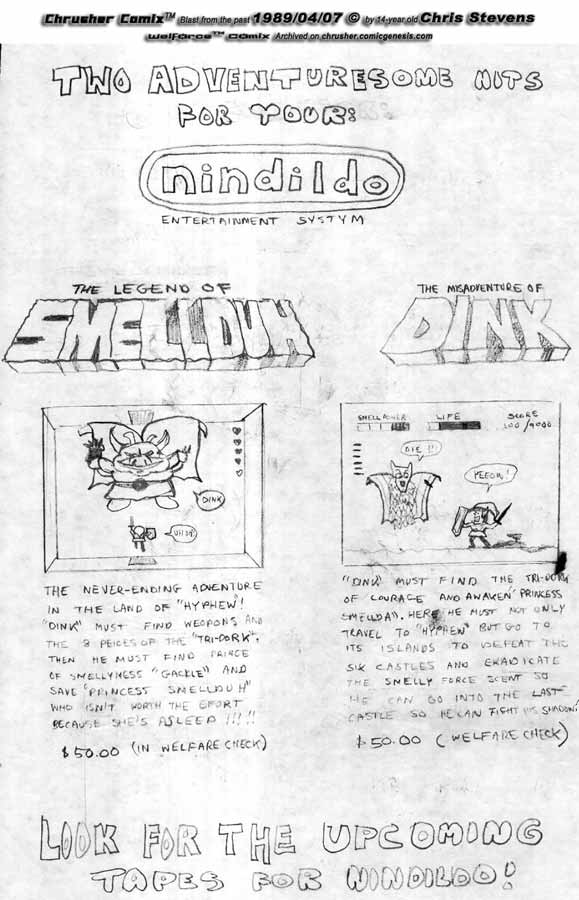 Chrusher Comix™ (Blast from the past) 1989/04/07 © by 14-year old Chris Stevens
Welforce™ Comix Archived on chrusher.comicgenesis.com
TWO ADVENTURESOME HITS
FOR YOUR:
nindildo
ENTERTAINMENT SYSTYM
THE LEGEND OF
SMELLDUH
DINK
UH OH
THE NEVER-ENDING ADVENTURE
IN THE LAND OF "HYPHEW"!
"DINK" MUST FIND WEAPONS AND
THE 8 PEICES OF THE "TRI-DORK",
THEN HE MUST FIND PRINCE
OF SMELLYNESS "GACKLE" AND
SAVE "PRINCESS SMELLDUH"
WHO ISN'T WORTH THE EFORT
BECAUSE SHE'S ASLEEP!!!!!
$50.00 (IN WELFARE CHECK)
THE MISADVENTURE OF
DINK
SMELLPOWER LIFE SCORE
100/9000
DIE!!
PEEOW!
"DINK" MUST FIND THE TRI-DORK
OF COURAGE AND AWAKEN PRINCESS
SMELLDA". HERE HE MUST NOT ONLY
TRAVEL TO "HYPHEN" BUT GO TO
ITS ISLANDS TO DEFEAT THE
SIX CASTLES AND ERADICATE
THE SMELLY FORCE SCENT SO
HE CAN GO INTO THE LAST
CASTLE SO HE CAN FIGHT HIS SHADOW!
$50.00 (WELFARE CHECK)
LOOK FOR THE UPCOMING
TAPES FOR NINDILDO!